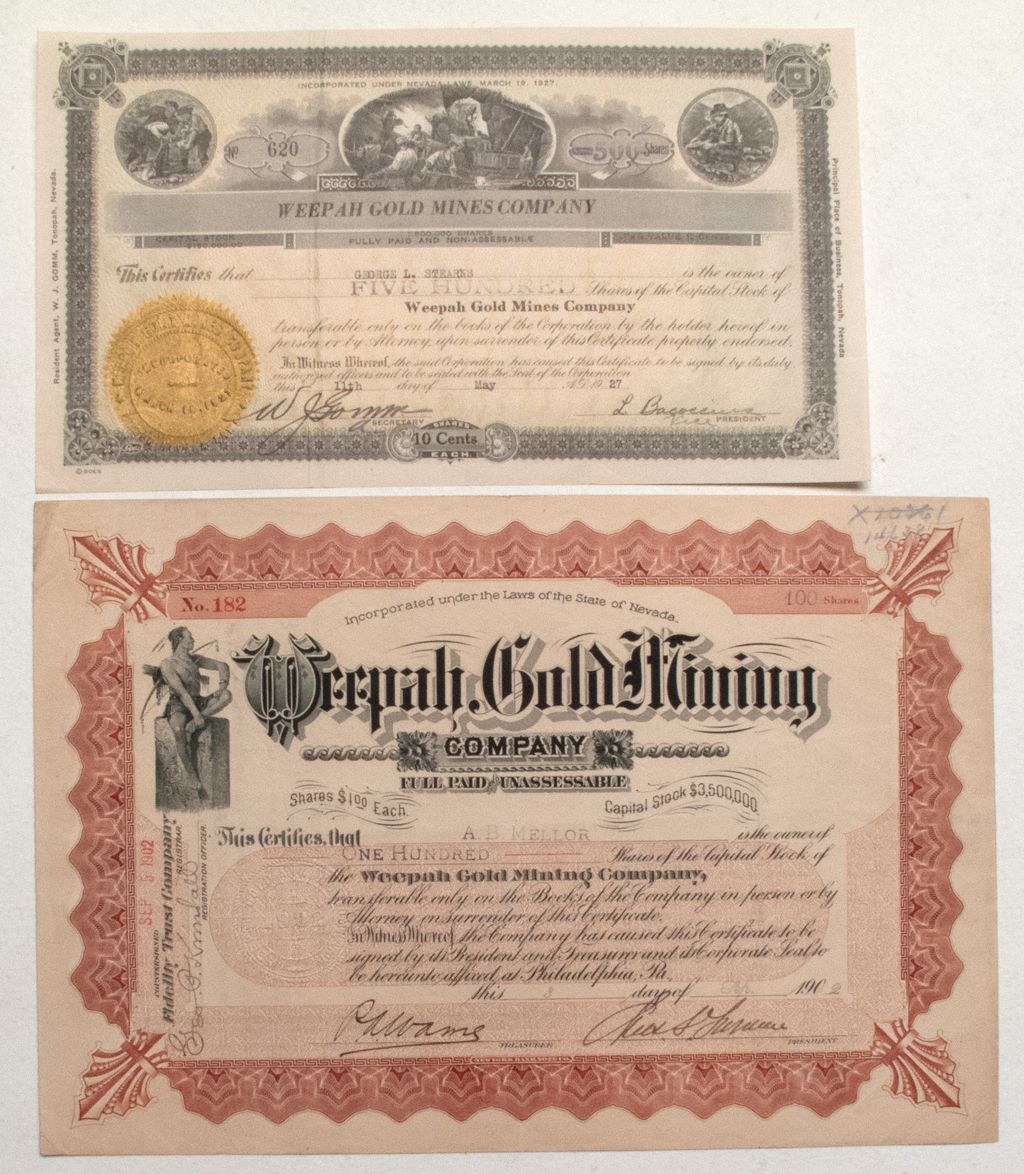 INCORPORATED UNDER NEVADA LAWS, MARCH 19, 1927.
No 620
500 Shares
WEEPAH GOLD MINES COMPANY
CAPITAL STOCK
1,500,000 SHARES
FULLY PAID AND NON-ASSESSABLE
PAR VALUE 10 CENTS
This Certifies that GEORGE L. STEARNS is the owner of
FIVE HUNDRED Shares of the Capital Stock of
Weepah Gold Mines Company
transferable only on the books of the Corporation by the holder hereof in
person or by Attorney, upon surrender of this Certificate properly endorsed.
In Witness Whereof, the said Corporation has caused this Certificate to be signed by its duly
authorized officers and to be sealed with the Seal of the Corporation
this 11th day of May A.D. 1927
W J Gomm
SECRETARY
Vice PRESIDENT
SHARES
10 Cents
EACH
©GOES
Resident Agent, W. J. GOMM, Tonopah, Nevada.
Principal Place of Business, Tonopah, Nevada
No. 182
100 Shares
Incorporated under the Laws of the State of Nevada.
Weepah Gold Mining
COMPANY
FULL PAID and UNASSESSABLE
Shares $1.00 Each.
Capital Stock $3,500,000
This Certifies, that A.B. MELLOR is the owner of
ONE HUNDRED Shares of the Capital Stock of
the Weepah Gold Mining Company,
transferable only on the Books of the Company in person or by
Attorney on surrender of this Certificate.
In Witness Whereof the Company has caused this Certificate to be
signed by its President and Treasurer and its Corporate Seal to
be hereunto affixed, at Philadelphia, Pa.
this 3 day of 1902
TREASURER
PRESIDENT
SEP 5 1902
COUNTERSIGNED
Fidelity Trust Company
REGISTRAR,
REGISTRATION OFFICER.